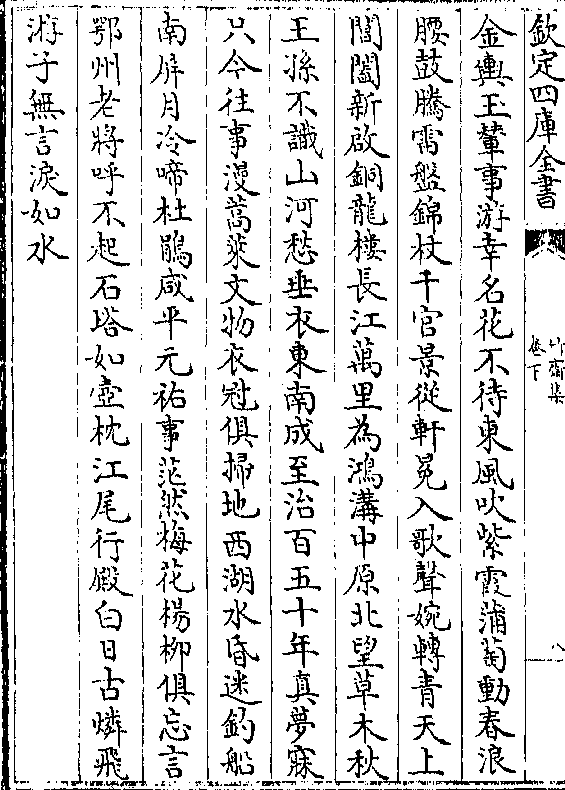 欽定四庫全書
竹齋集
卷下
八
金輿玉輦事游幸名花不待東風吹紫霞蒲萄動春浪
腰鼓騰雷盤錦杖千官景從軒冕入歌聲婉轉青天上
閶闔新啟銅龍樓長江萬里為鴻溝中原北望草木秋
王孫不識山河愁垂衣東南成至治百五十年真夢寐
只今往事漫蒿萊文物衣冠俱掃地西湖水昏迷釣船
南屏月冷啼杜鵑咸平元祐事茫然梅花楊柳俱忘言
鄂州老將呼不起石塔如壺枕江尾行殿白日古燐飛
游子無言淚如水